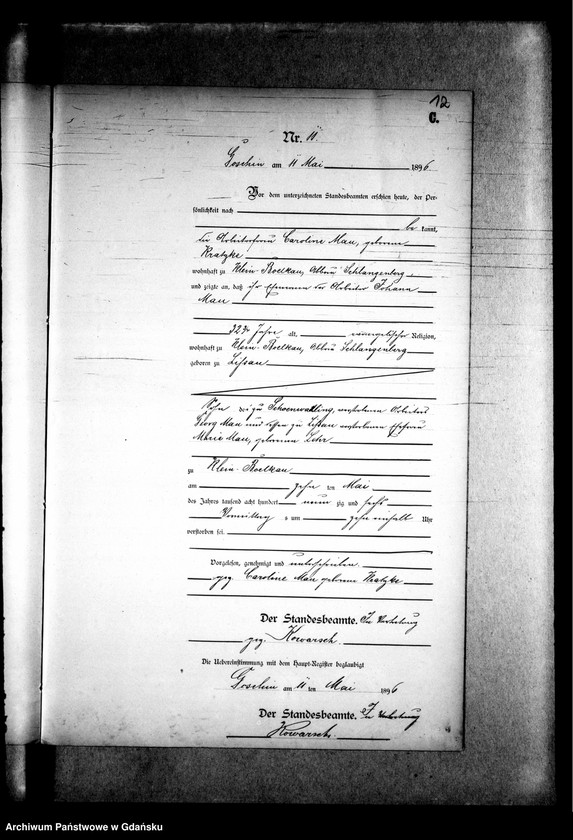 12
C.
Nr. 11.
Goschin am 11 Mai 1896.
Vor dem unterzeichneten Standesbeamten erschien heute, der Per-
sönlichkeit nach
be kannt,
die Arbeiterfrau Caroline Mau, geborene
Kratzke
wohnhaft zu Klein-Boelkau, Abbau Schlangenberg
und zeigte an, daß ihr Ehemann der Arbeiter Johann
Mau
32¾ Jahre alt, evangelischer Religion,
wohnhaft zu Klein-Boelkau, Abbau Schlangenberg
geboren zu Lissau
Sohn des zu Schoenwarling verstorbenen Arbeiters
Georg Mau und der zu Lissau verstorbenen Ehefrau
Marie Mau, geborenen
zu Klein-Boelkau
am zehn ten Mai
des Jahres tausend acht hundert neun zig und sechs
Vormittag s um zehn einhalb Uhr
verstorben sei.
Vorgelesen, genehmigt und unterschrieben
gez. Caroline Mau geborene Kratzke
Der Standesbeamte. In Vertretung
gez. Kowarsch.
Die Uebereinstimmung mit dem Haupt-Register beglaubigt
Goschin am 11 ten Mai 1896
Der Standesbeamte. In Vertretung
Kowarsch.
Archiwum Państwowe w Gdańsku